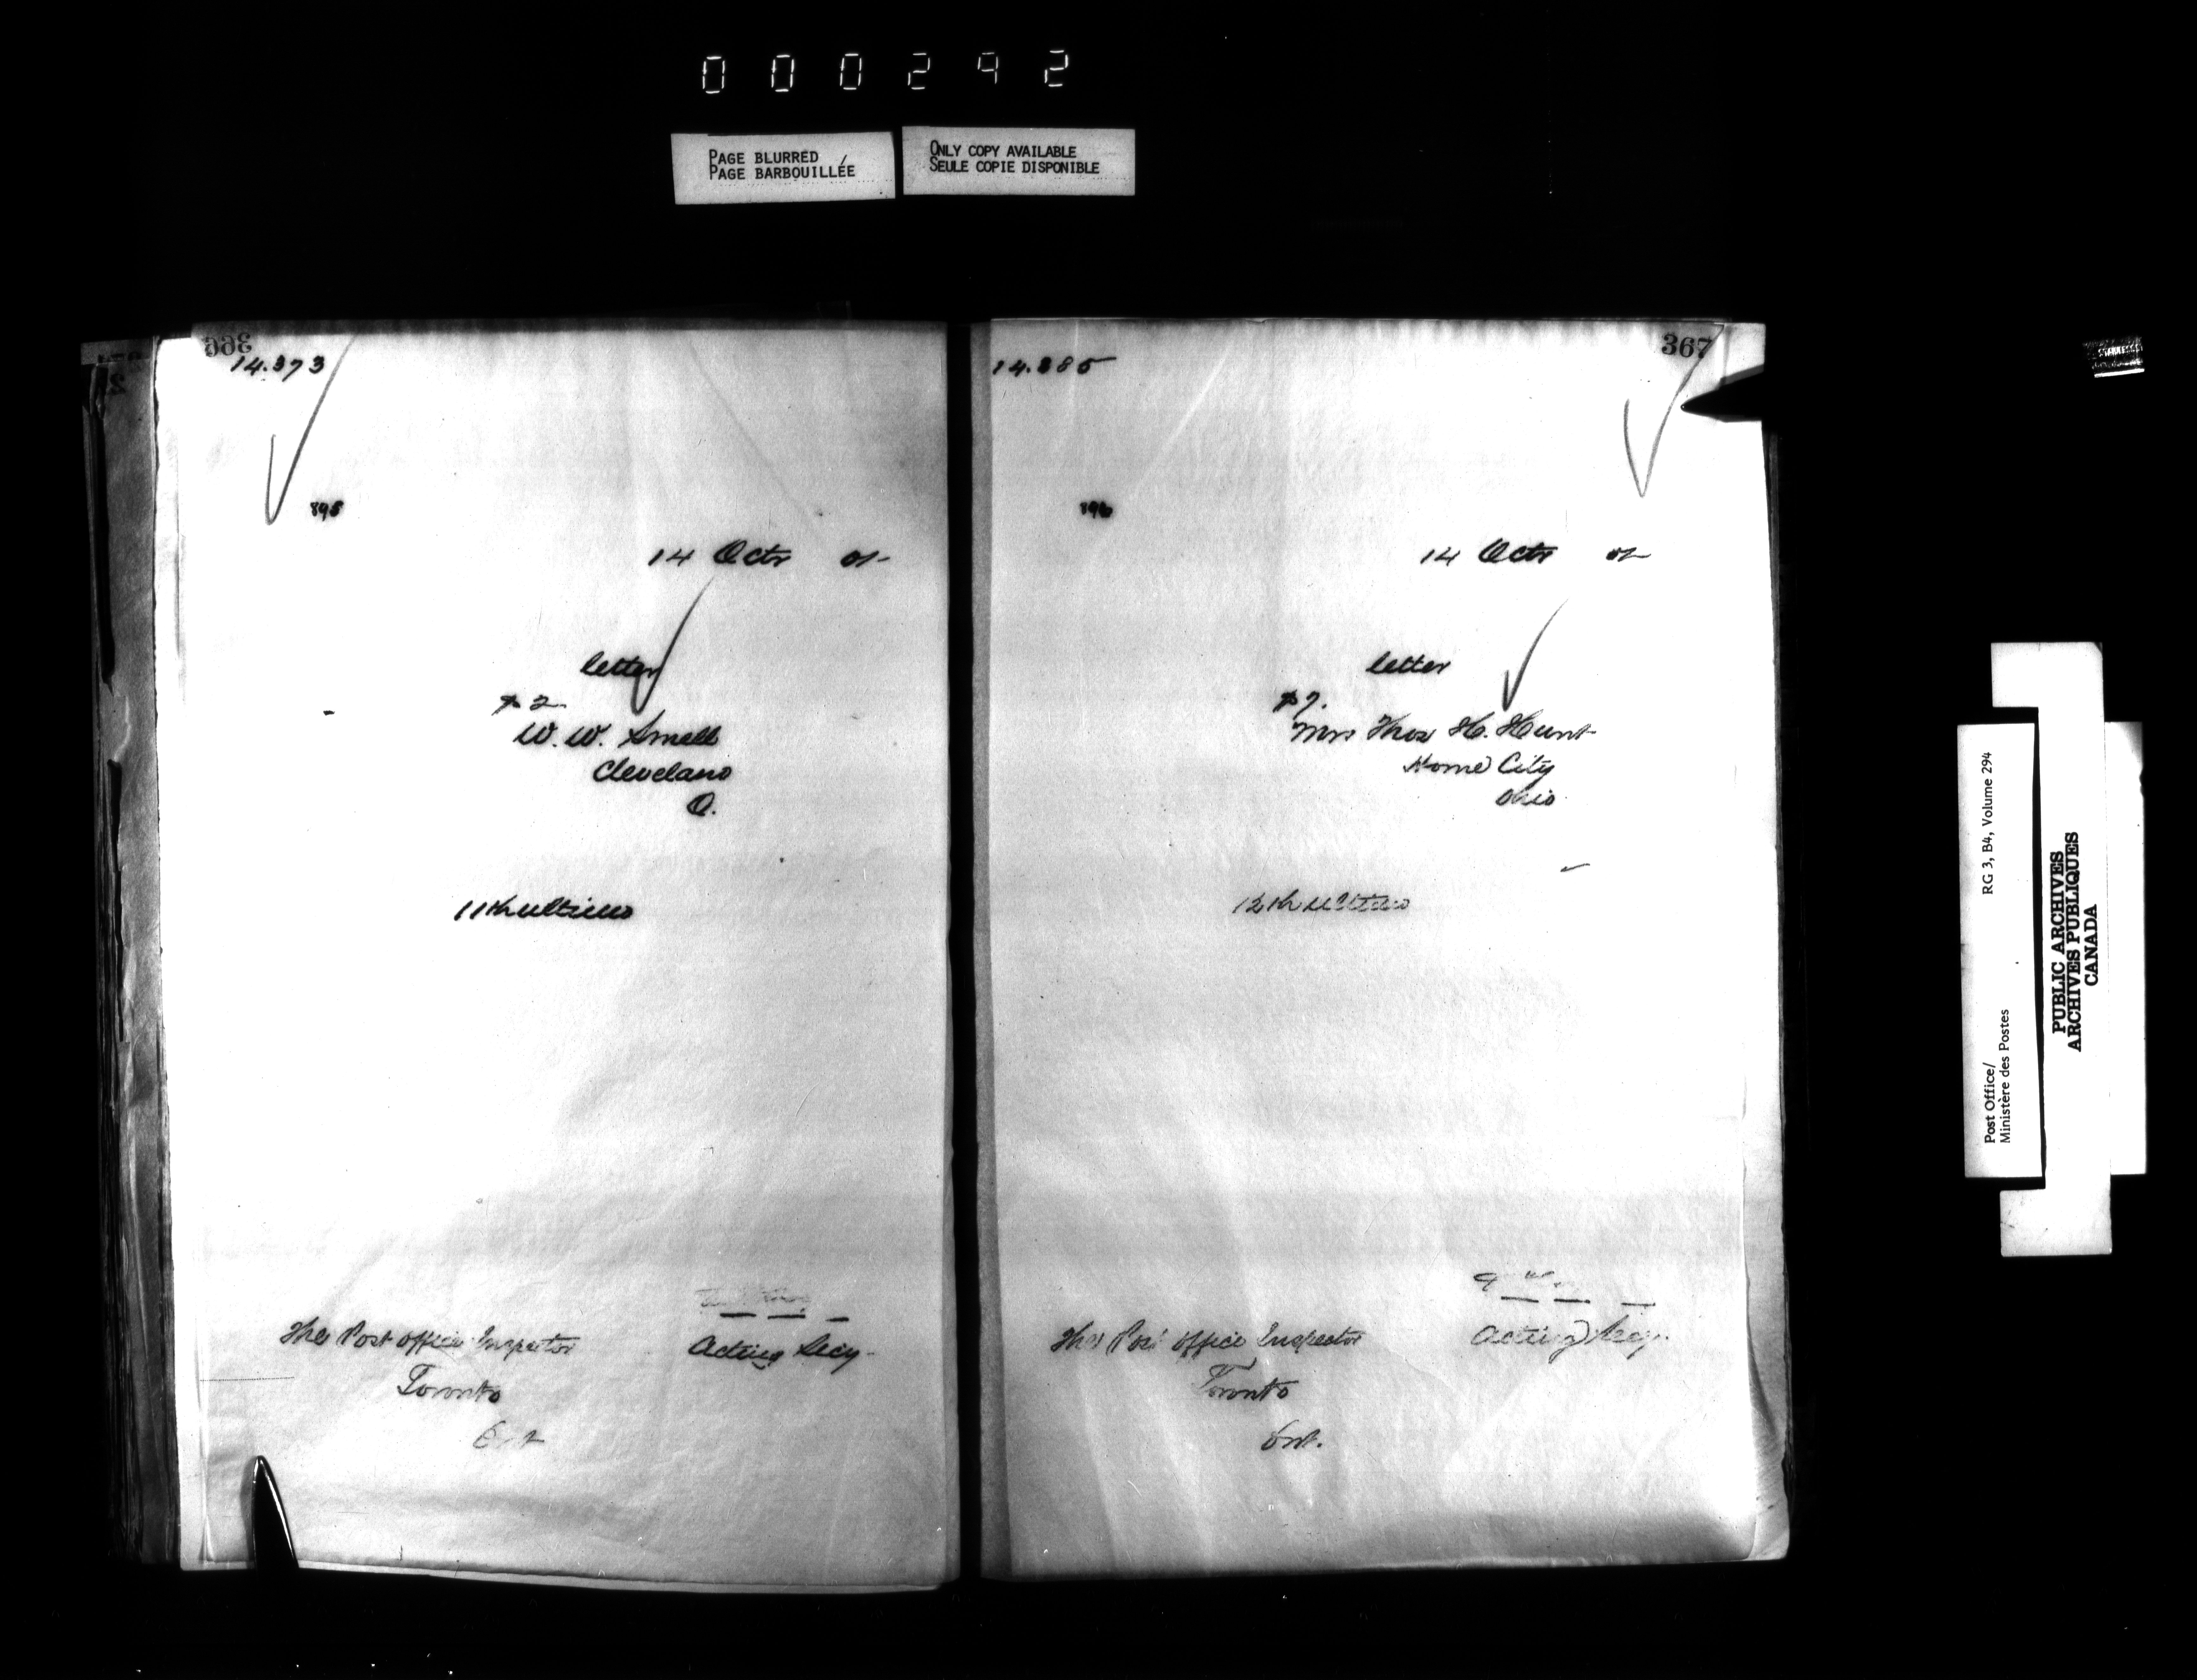 000292
PAGE BLURRED
PAGE BARBOUILLÉE
ONLY COPY AVAILABLE
SEULE COPIE DISPONIBLE
366
14.373
895
14 Octr 01
letter
W. W. Small
Cleveland
O.
11th ultimo
The Post Office Inspector
Toronto
Acting Secy.
367
14.385
896
14 Octr 01
letter
Mrs Thos H. Hunt
Home City
Ohio
12th ultimo
The Post Office Inspector
Toronto
Ont.
Acting Secy.
Post Office/
Ministère des Postes
RG 3, B4, Volume 294
PUBLIC ARCHIVES
ARCHIVES PUBLIQUES
CANADA